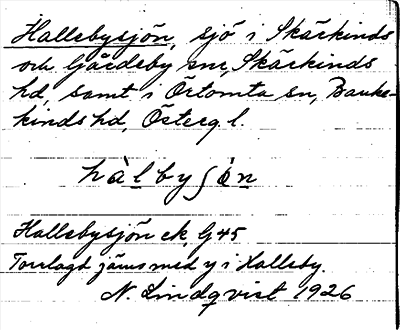 Hallebysjön, sjö i Skärkinds
och Gårdeby snr, Skärkinds
hd, samt i Örtomta sn, Banke-
kinds hd, Östergl.
hàlbyʃö́n
Hallebysjön ek. G 45
Torrlagd jäms med y i Halleby.
N. Lindqvist 1926